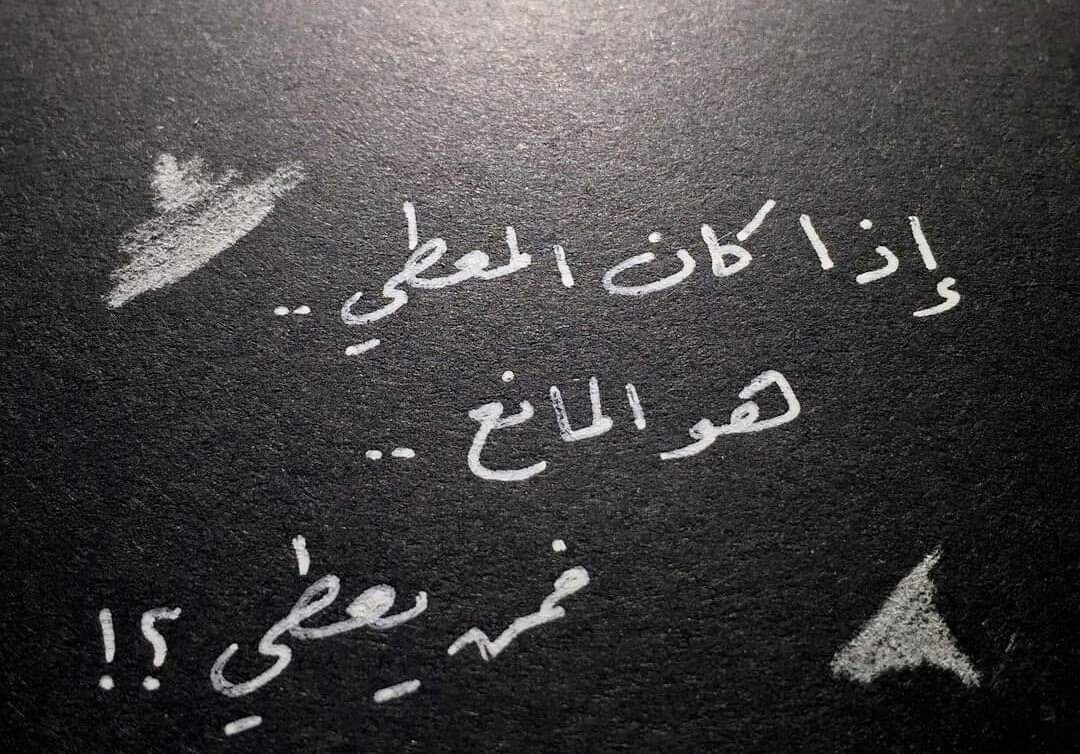 إذا كان المعطي ..
هو المانع ..
فمن يعطي ؟!